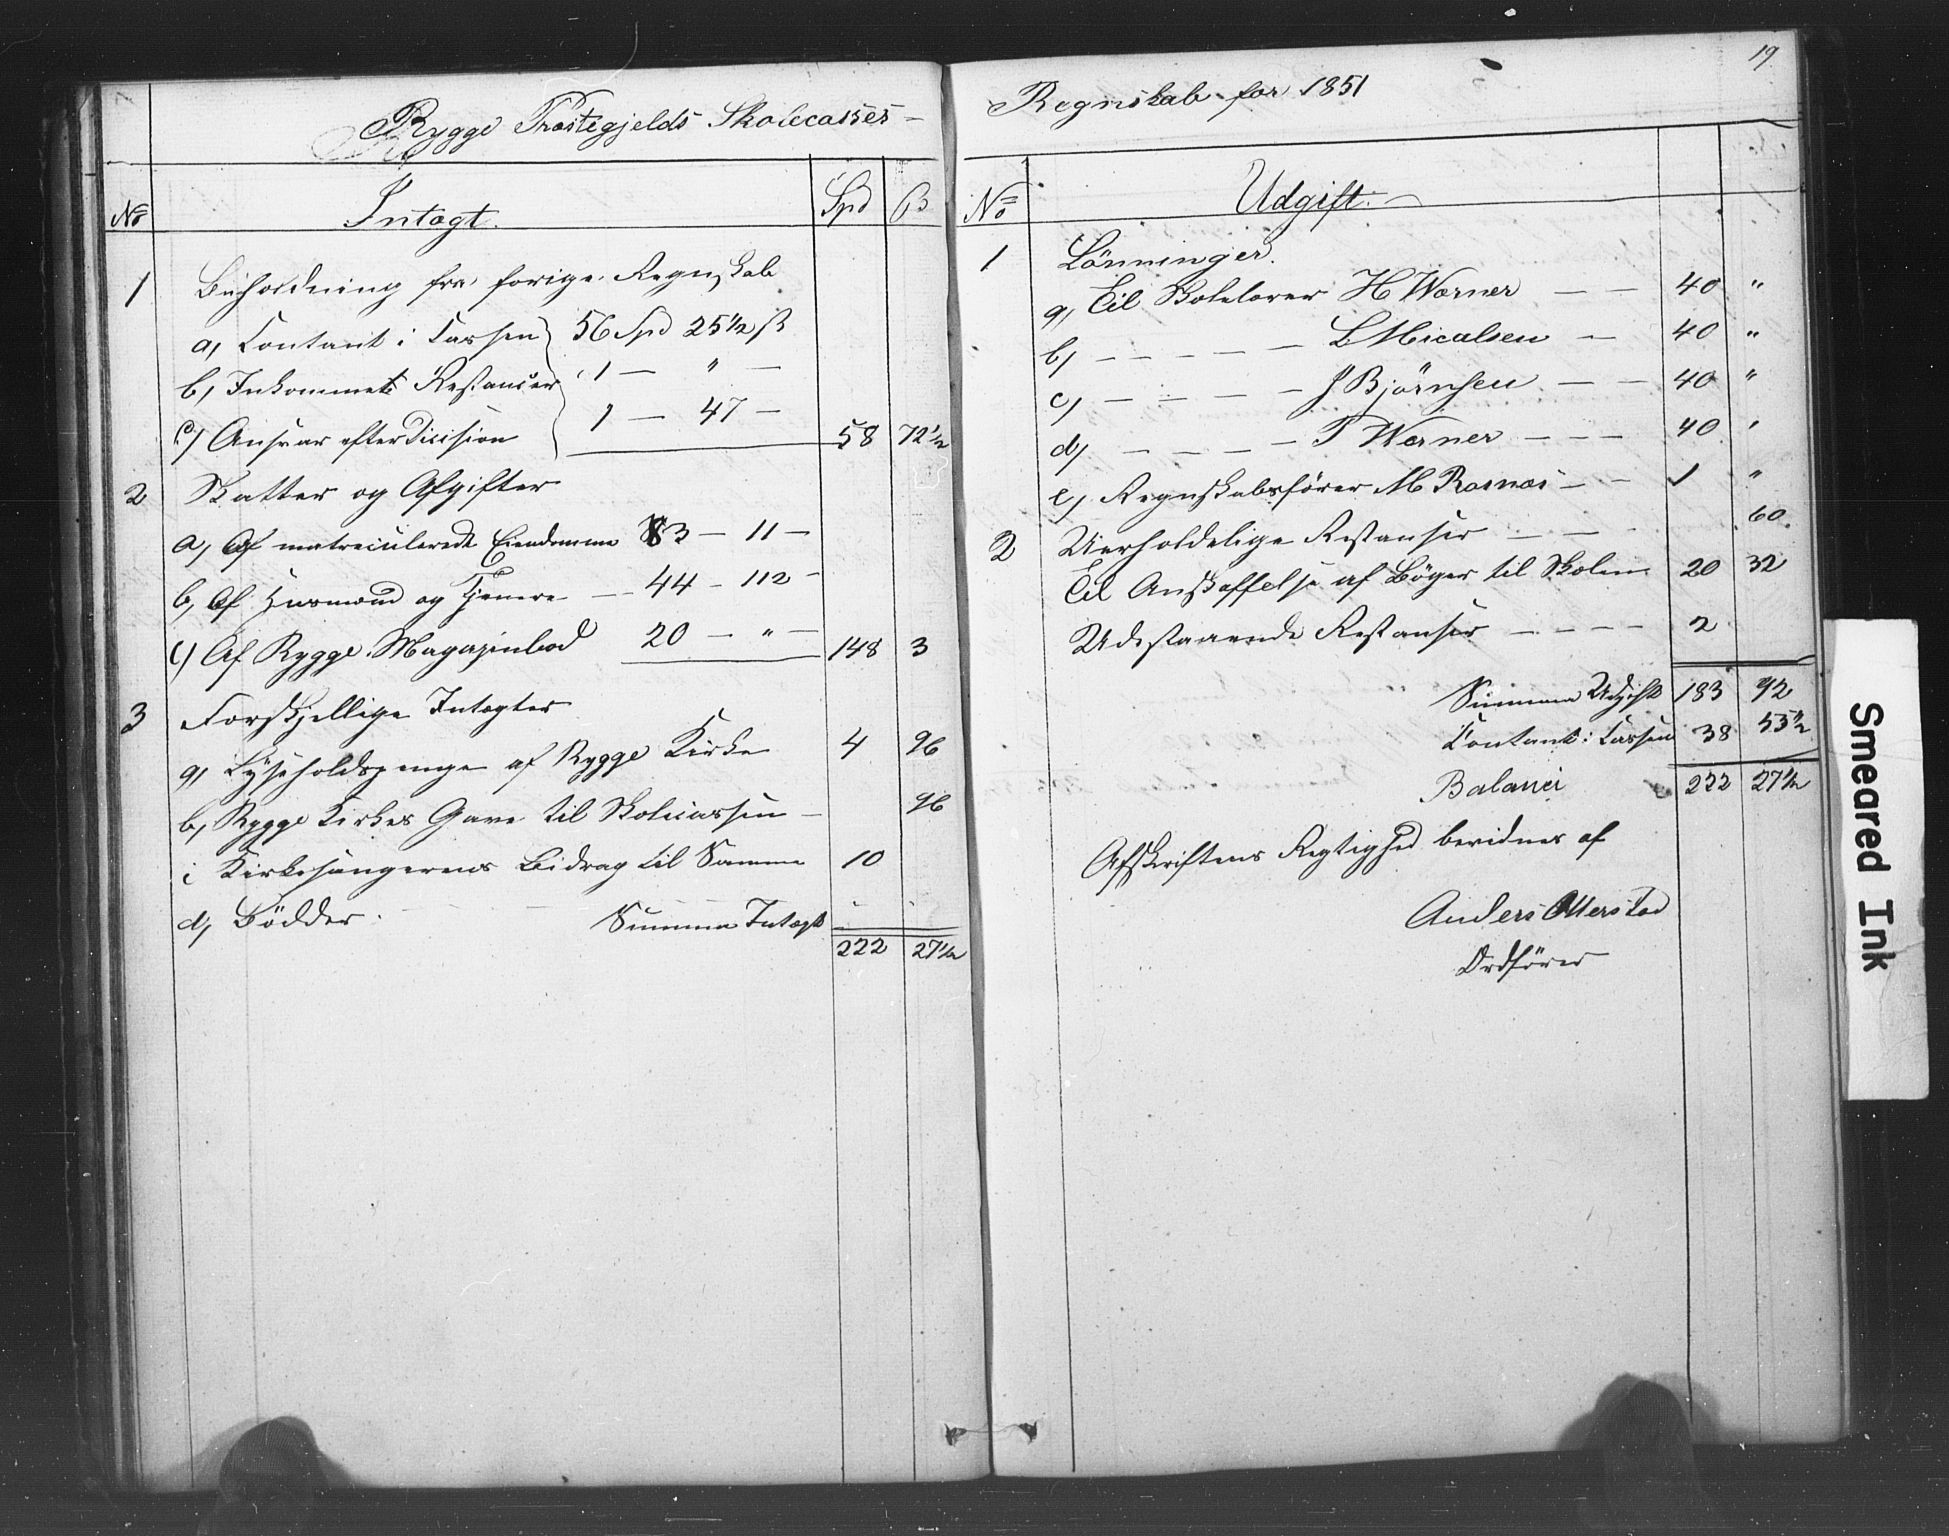 Rygge Præstegjelds Skolecasses –
No Intægt. Spd ß
1 Beholdning fra forige Regnskab
a, Contant i Cassen 56 Spd 25½ ß
b, Inkommet Restancer 1 — " —
c) Ansvar efter Dicision 1 — 47 — 58 72½
2 Skatter og Afgifter
a, Af matriculerede Eiendomme 83 — 11 —
b, Af Husmænd og Tjenere — 44 — 112 –
c) Af Rygge Magazinbod 20 — " — 148 3
3 Forskjellige Intægter
a, Lyseholdspenge af Rygge Kirke 4 96
b, Rygge Kirkes Gave til Skolecassen – 96
i Kirkesangerens Bidrag til Samme 10
d, Bödder.
Summa Intægt 222 27½
19
Regnskab for 1851
No Udgift.
1 Lönninger.
a, Til Skolelærer H Wærner — — 40 "
b) — — — — — L Micalsen — 40 "
c) — — — — — J Björnsen — — 40 "
d) — — — — T Wærner — — — 40 "
e, Regnskabsfører M Rosnæs — — 1 "
2 Uerholdelige Restanser — — 60.
Til Anskaffelse af Bøger til Skolen 20 32
Udestaaende Restanser — — — — 2
Summa Udgift 183 92
Contant i Cassen 38 55½
Balance 222 27½
Afskriftens Rigtighed bevidnes af
Anders Ollerstad
Ordfører
Smeared Ink